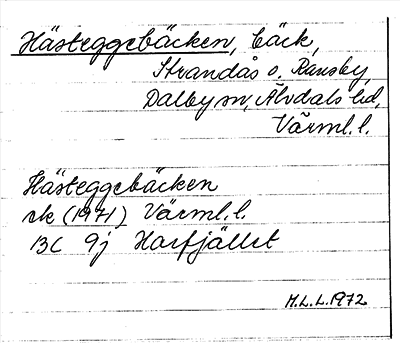 Hästeggebäcken, bäck,
Strandås o. Ransby,
Dalby sn, Älvdals hd,
Värml. l.
Hästeggebäcken
ek (1971) Värml. l.
13C 9j Harfjället
M.L.L. 1972